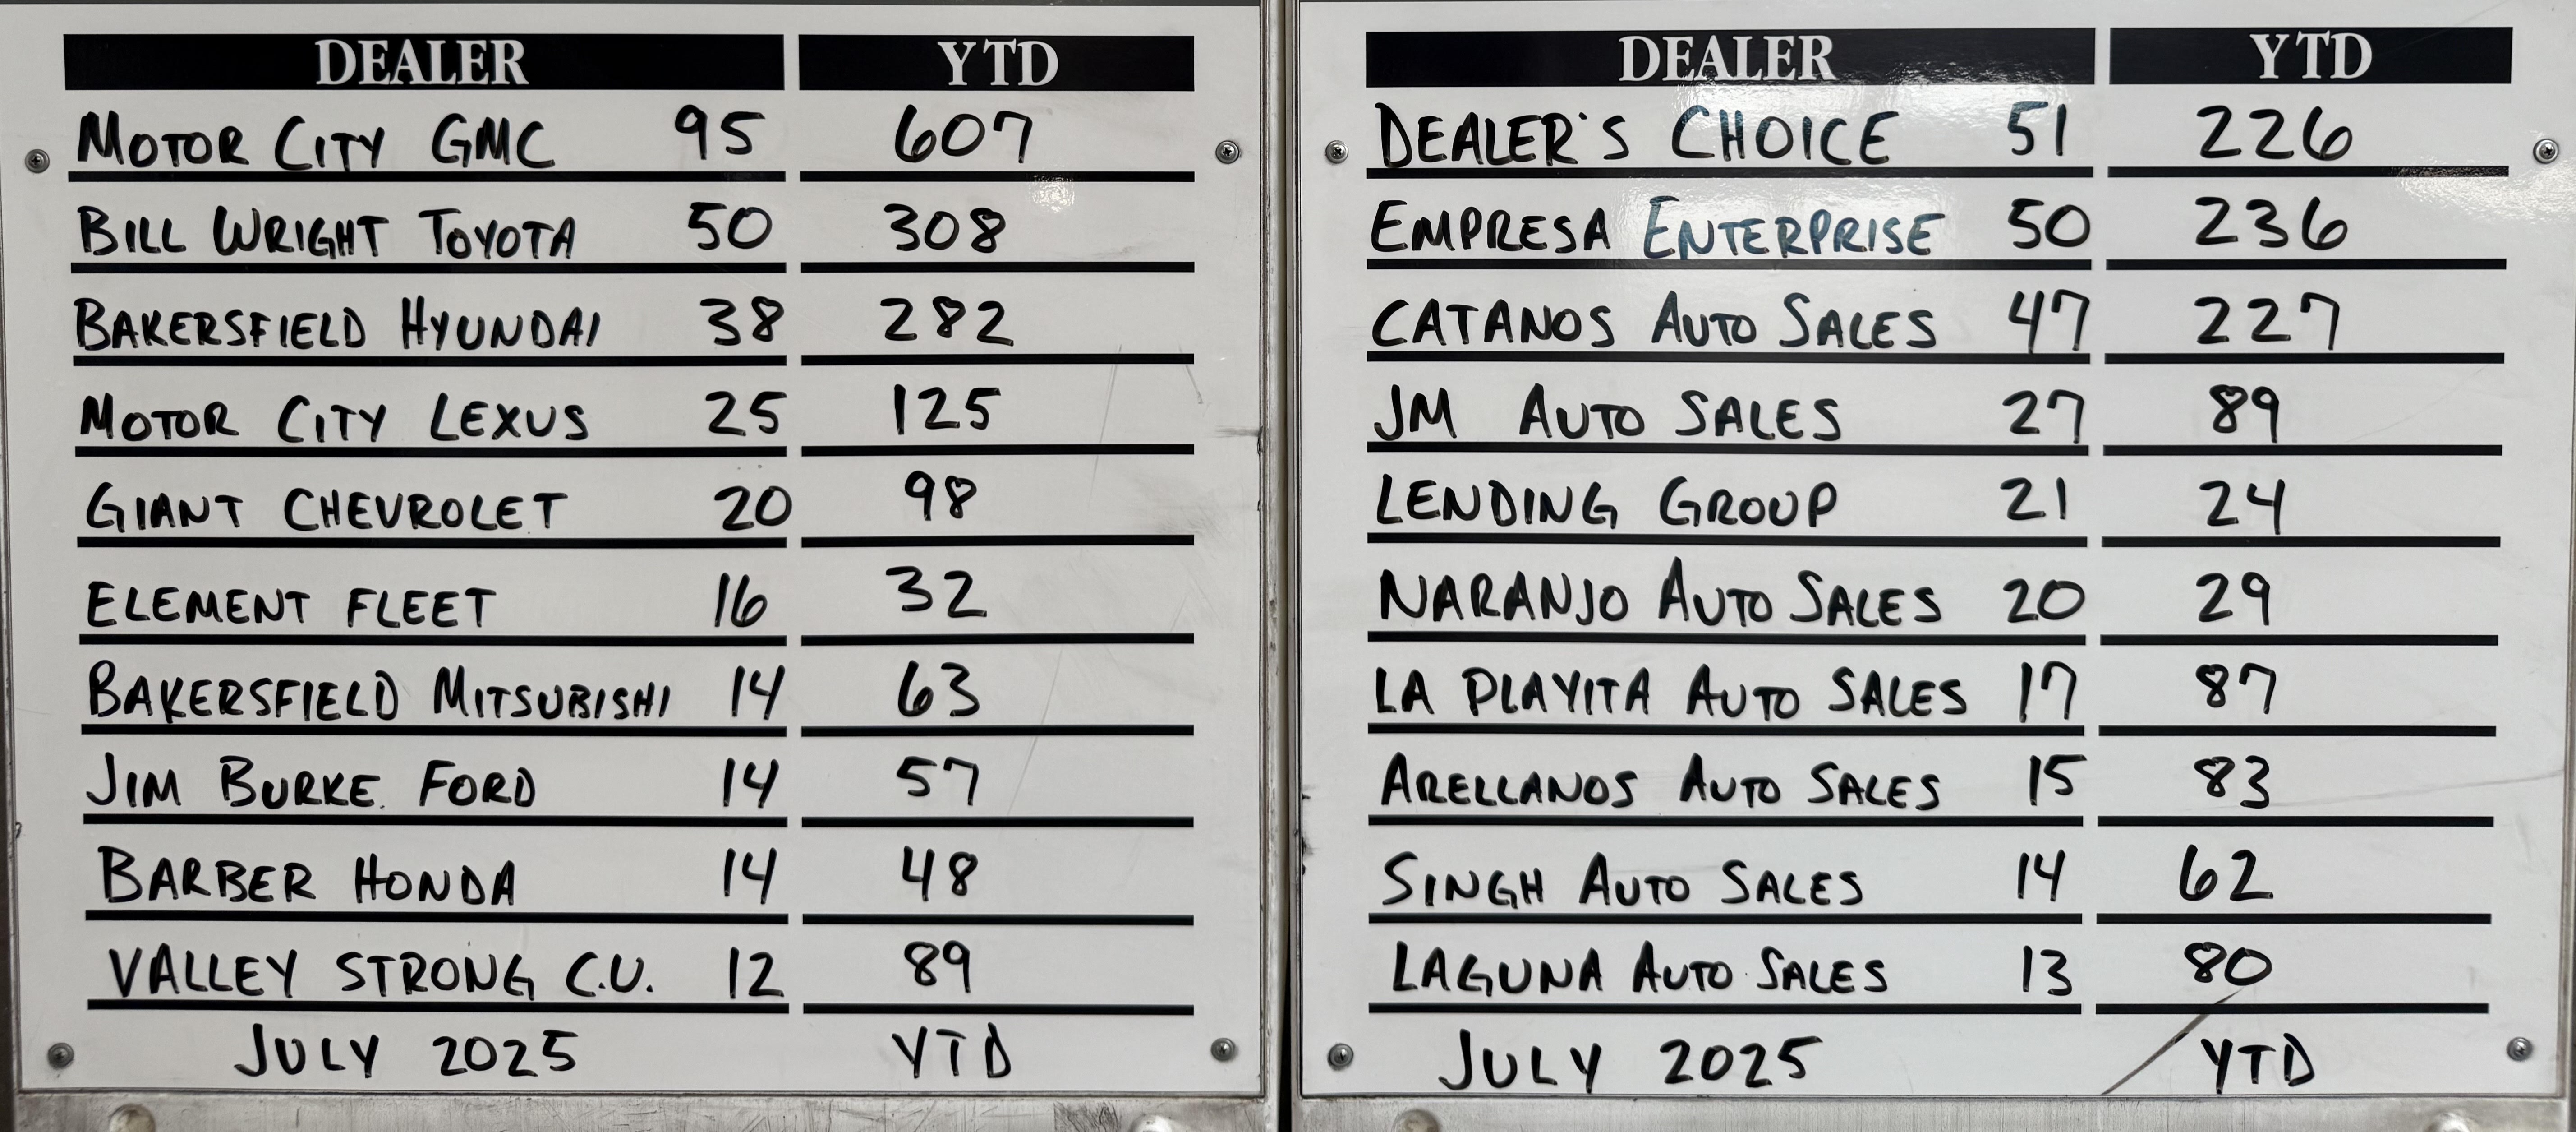 DEALER YTD
MOTOR CITY GMC 95 607
BILL WRIGHT TOYOTA 50 308
BAKERSFIELD HYUNDAI 38 282
MOTOR CITY LEXUS 25 125
GIANT CHEVROLET 20 98
ELEMENT FLEET 16 32
BAKERSFIELD MITSUBISHI 14 63
JIM BURKE FORD 14 57
BARBER HONDA 14 48
VALLEY STRONG C.U. 12 89
JULY 2025 YTD
DEALER YTD
DEALER'S CHOICE 51 226
EMPRESA ENTERPRISE 50 236
CATANOS AUTO SALES 47 227
JM AUTO SALES 27 89
LENDING GROUP 21 24
NARANJO AUTO SALES 20 29
LA PLAYITA AUTO SALES 17 87
ARELLANOS AUTO SALES 15 83
SINGH AUTO SALES 14 62
LAGUNA AUTO SALES 13 80
JULY 2025 YTD